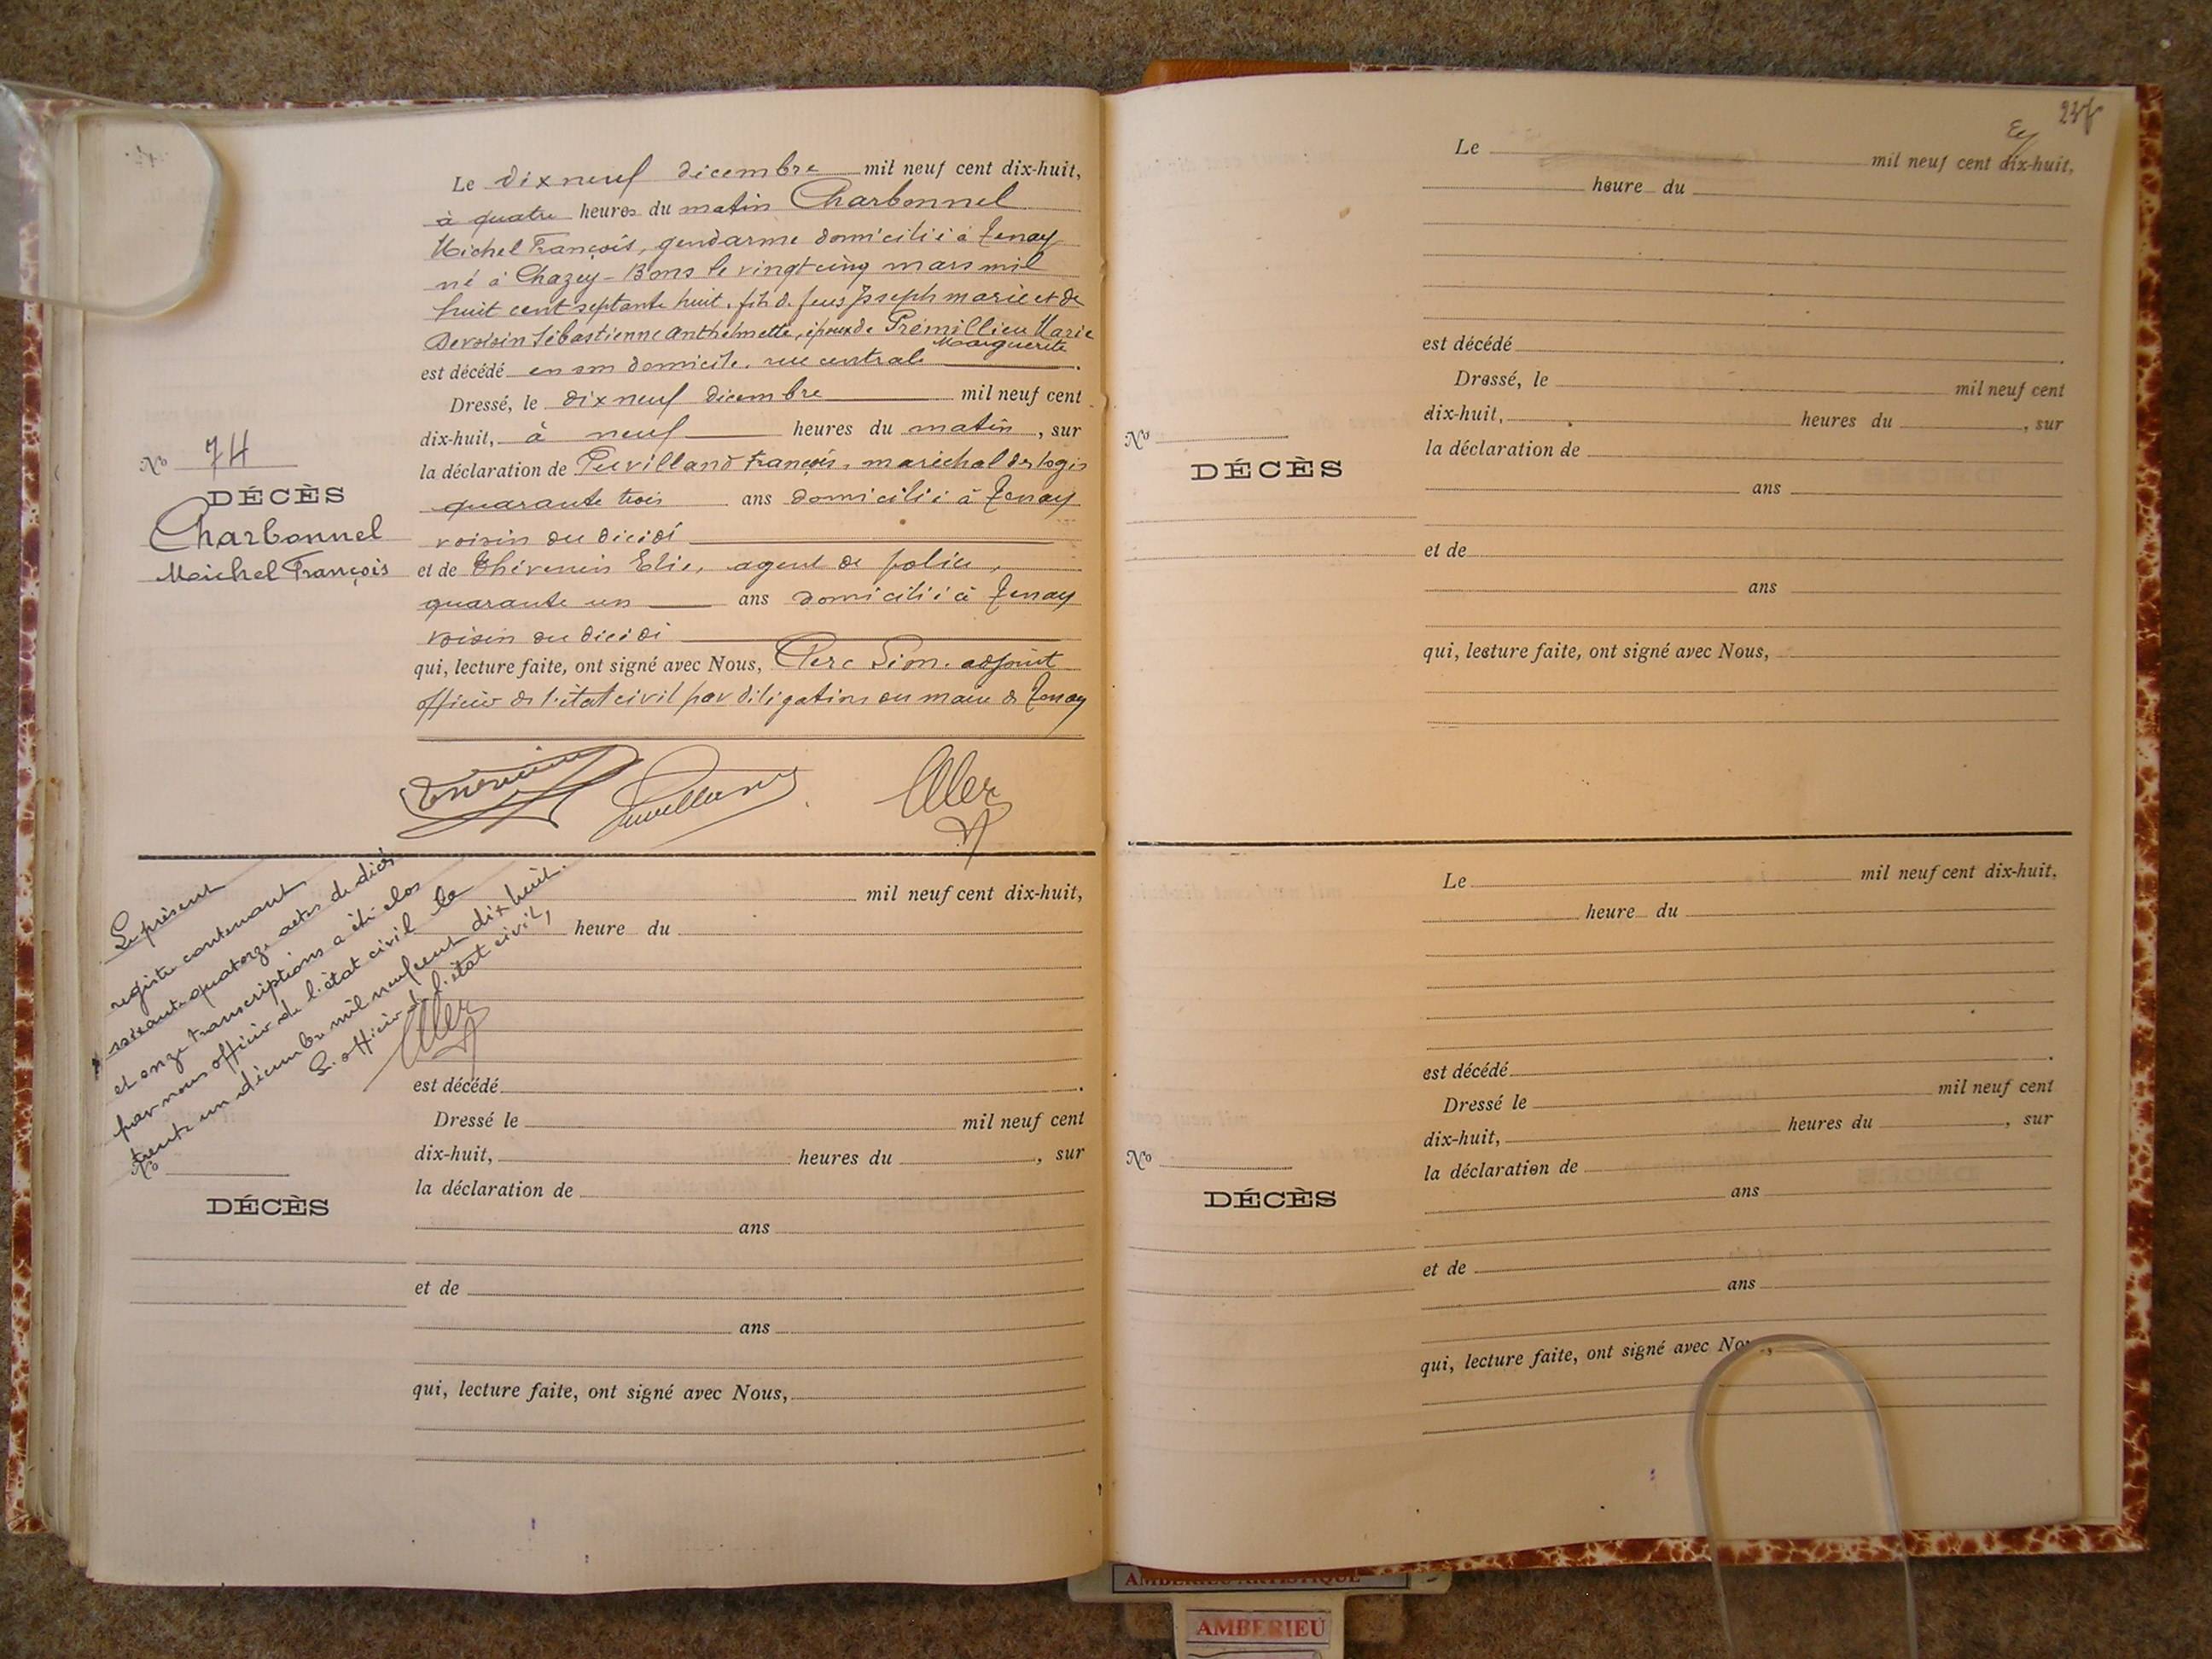 Le dix neuf décembre mil neuf cent dix-huit,
à quatre heures du matin Charbonnel
Michel François, gendarme domicilié à Tenay
né à Chazey-Bons le vingt cinq mars mil
huit cent septante huit, fils de feus Joseph marie et de
Devoisin Sébastienne Anthelmette, époux de Prémillieu Marie
Marguerite
est décédé en son domicile, rue centrale
Dressé, le dix neuf décembre mil neuf cent
dix-huit, à neuf heures du matin, sur
la déclaration de Puvilland François, maréchal des logis
quarante trois ans domicilié à Tenay
voisin du décédé
et de Thévenin Elie, agent de police,
quarante un ans domicilié à Tenay
voisin du décédé
qui, lecture faite, ont signé avec Nous, adjoint
officier de l'état civil par déligation du maire de Tenay
No 74
DÉCÈS
Charbonnel
Michel François
Le présent
registre contenant
soixante quatorze actes de décès
et onze transcriptions a été clos
par nous officier de l'état civil le
trente un décembre mil neuf cent dix huit.
L'officier de l'état civil,
mil neuf cent dix-huit,
heure du
est décédé
Dressé le mil neuf cent
dix-huit, heures du , sur
la déclaration de
ans
et de
ans
qui, lecture faite, ont signé avec Nous,
No
DÉCÈS
Le mil neuf cent dix-huit,
heure du
est décédé
Dressé, le mil neuf cent
dix-huit, heures du , sur
la déclaration de
ans
et de
ans
qui, lecture faite, ont signé avec Nous,
No
DÉCÈS
Le mil neuf cent dix-huit,
heure du
est décédé
Dressé le mil neuf cent
dix-huit, heures du , sur
la déclaration de
ans
et de
ans
qui, lecture faite, ont signé avec Nous,
No
DÉCÈS
AMBERIEU ARTISTIQUE
AMBERIEU